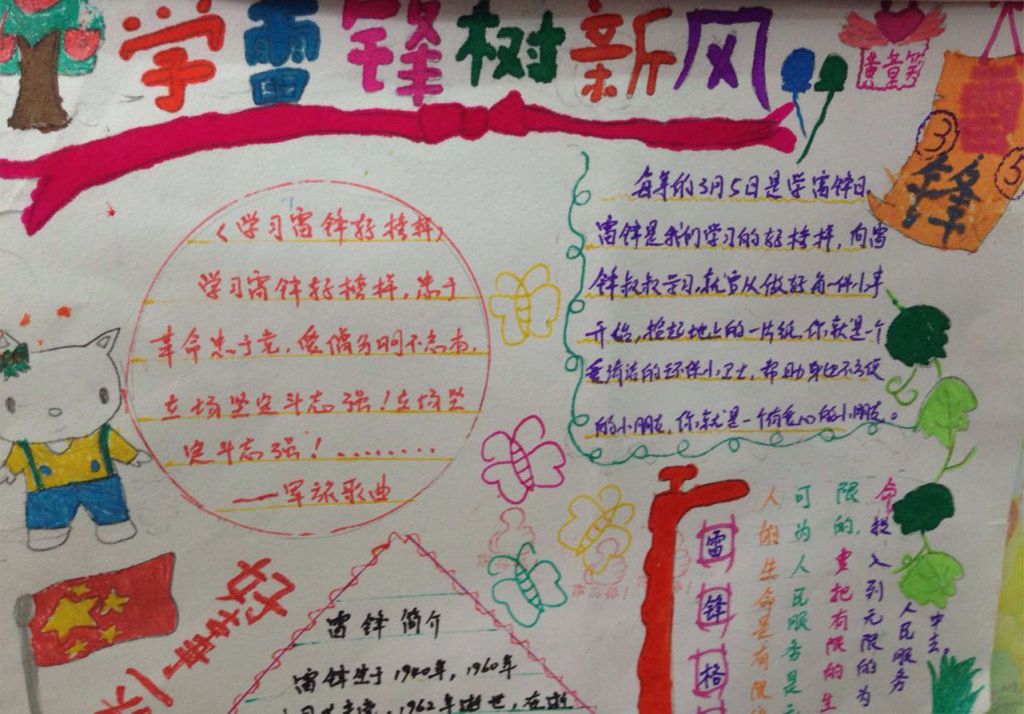 学雷锋树新风
雷
锋
3
5
《学习雷锋好榜样》
学习雷锋好榜样，忠于
革命忠于党，爱憎分明不忘本，
立场坚定斗志强！立场坚
定斗志强！........
——军旅歌曲
每年的3月5日是学雷锋日，
雷锋是我们学习的好榜样，向雷
锋叔叔学习，就当从做好每一件小事
开始，捡起地上的一片纸，你就是一个
爱清洁的环保小卫士，帮助身边不方便
的小朋友，你就是一个有爱心的小朋友。
雷锋简介
雷锋生于1940年，1960年
1962年逝世，在逝
雷锋格
人的生命是有限
可为人民服务是无
限的，要把有限的生
命投入到无限的为
人民服务
中去。